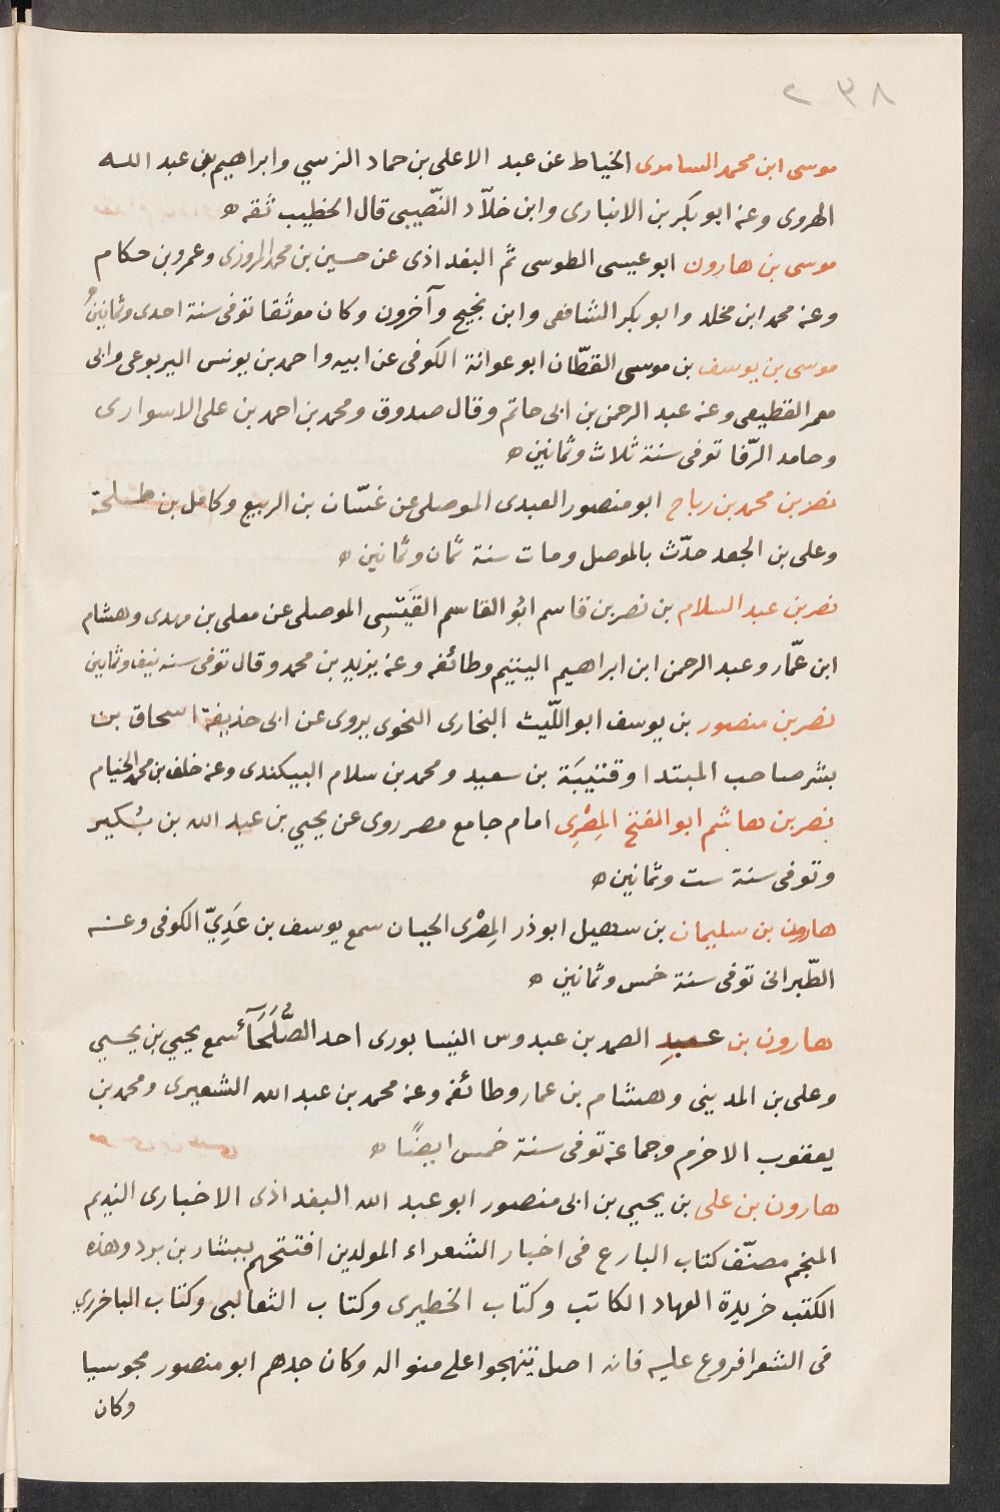 ٢٩٨
موسى ابن محمد السامرى الخياط عن عبد الاعلى بن حماد النرسي وابراهيم بن عبد الله
الهروى وعنه ابو بكر بن الانبارى وابن خلّاد النّصيبى قال الخطيب ثقه ه
موسى بن هارون ابو عيسى الطوسى ثم البغداذى عن حسين بن محمد المروزى وعمرو بن حكام
وعنه محمد ابن مخلد وابو بكر الشافعى وابن نجيح وآخرون وكان موثقا توفى سنة احدى وثمانين
موسى بن يوسف بن موسى القطّان ابو عوانة الكوفى عن ابيه واحمد بن يونس اليربوعى وابى
معمر القطيعى وعنه عبد الرحمن بن ابى حاتم وقال صدوق ومحمد بن احمد بن على الاسوارى
وحامد الرّفا توفى سنة ثلاث وثمانين ه
نصر بن محمد بن رباح ابو منصور العبدى الموصلى عن غسّان بن الربيع وكامل بن طلحة
وعلى بن الجعد حدّث بالموصل ومات سنة ثمان وثمانين ه
نصر بن عبد السلام بن نصر بن قاسم ابو القاسم القَيْسِى الموصلى عن معلى بن مهدى وهشام
ابن عمّار وعبد الرحمن ابن ابراهيم اليتيم وطائفه وعنه يزيد بن محمد وقال توفى سنه نيف وثمانين
نصر بن منصور بن يوسف ابو اللّيث البخارى النحوى يروى عن ابى حذيفة اسحاق بن
بشر صاحب المبتدا وقتيبَة بن سعيد ومحمد بن سلام البيكندى وعنه خلف بن محمد الخيام
نصر بن هاشم ابو الفتح المِصْرِى امام جامع مصر روى عن يحيي بن عبد الله بن بُكير
وتوفى سنة ست وثمانين ه
هارون بن سليمان بن سهيل ابو ذر المِصْرى الجبان سمع يوسف بن عَدِيّ الكوفى وعنه
الطّبرانى توفى سنة خمس وثمانين ه
هارون بن عبدِ الصمد بن عبدوس النيسابورى احد الصُّلَحَآء سمع يحيي بن يحيي
وعلى بن المدينى وهشام بن عمار وطائفه وعنه محمد بن عبد الله الشعيرى ومحمد بن
يعقوب الاخرم وجماعة توفى سنة خمس ايضًا ه
هارون بن على بن يحيي بن ابى منصور ابو عبد الله البغداذى الاخبارى النديم
المنجم مصنّف كتاب البارع فى اخبار الشعراء المولدين افتتحهم ببشار بن برد وهذه
الكتب خريدة العماد الكاتب وكتاب الخطيرى وكتاب الثعالبى وكتاب الباخرزي
فى الشعرا فروع عليه فانه اصل نتهجوا على منواله وكان جدهم ابو منصور مجوسيا
وكان